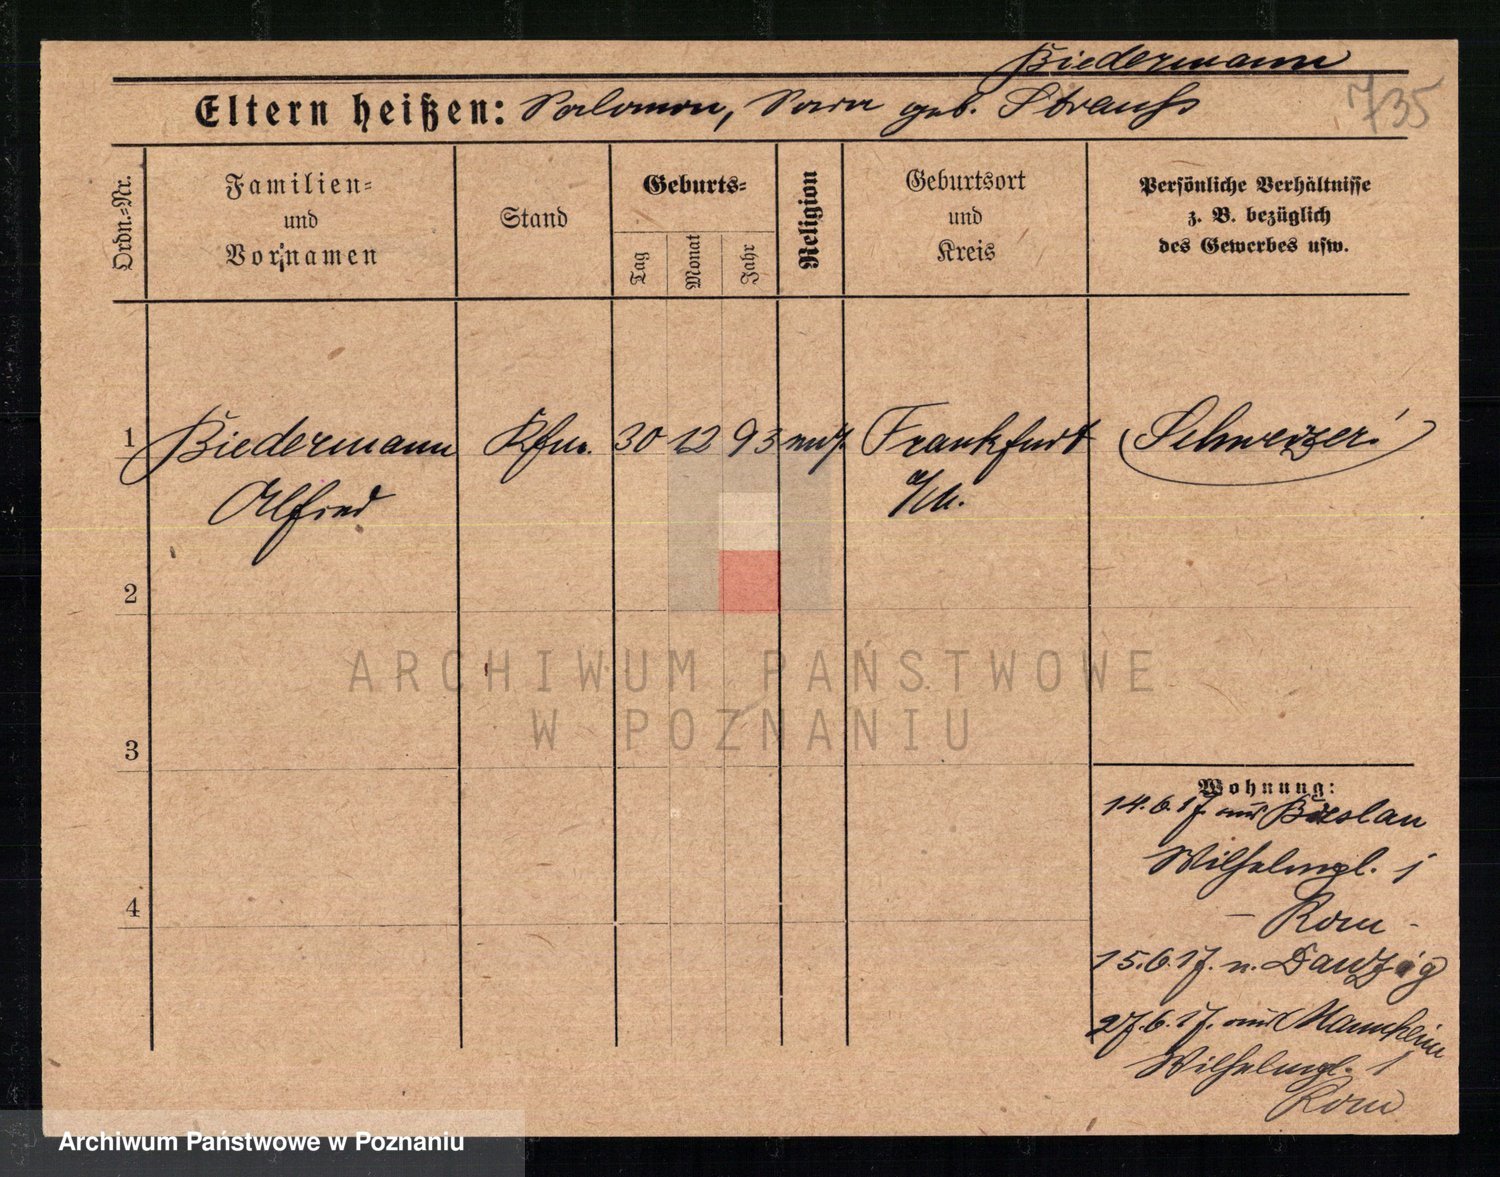 Biedermann
Eltern heißen: Salomon, Sara geb. Strauß
735
Ordn.-Nr.
Familien-
und
Vornamen
Stand
Geburts-
Tag
Monat
Jahr
Religion
Geburtsort
und
Kreis
Persönliche Verhältnisse
z. B. bezüglich
des Gewerbes usw.
1 Biedermann Kfm. 30 12 93 Frankfurt Schweizer!
Alfred a/M.
2
3
4
ARCHIWUM PAŃSTWOWE
W POZNANIU
Wohnung:
14.6.17. aus Breslau
Wilhelmpl. 1
– Rom –
15.6.17. n. Danzig
27.6.17. aus Mannheim
Wilhelmpl. 1
Rom
Archiwum Państwowe w Poznaniu